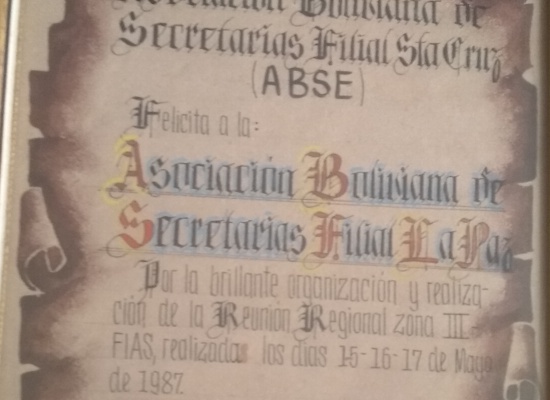 Asociación Boliviana de
Secretarias Filial Sta Cruz
(ABSE)
Felicita a la:
Asociación Boliviana de
Secretarias Filial La Paz
Por la brillante organización y realiza-
ción de la Reunión Regional zona III-
FIAS, realizadas los días 15-16-17 de Mayo
de 1987.